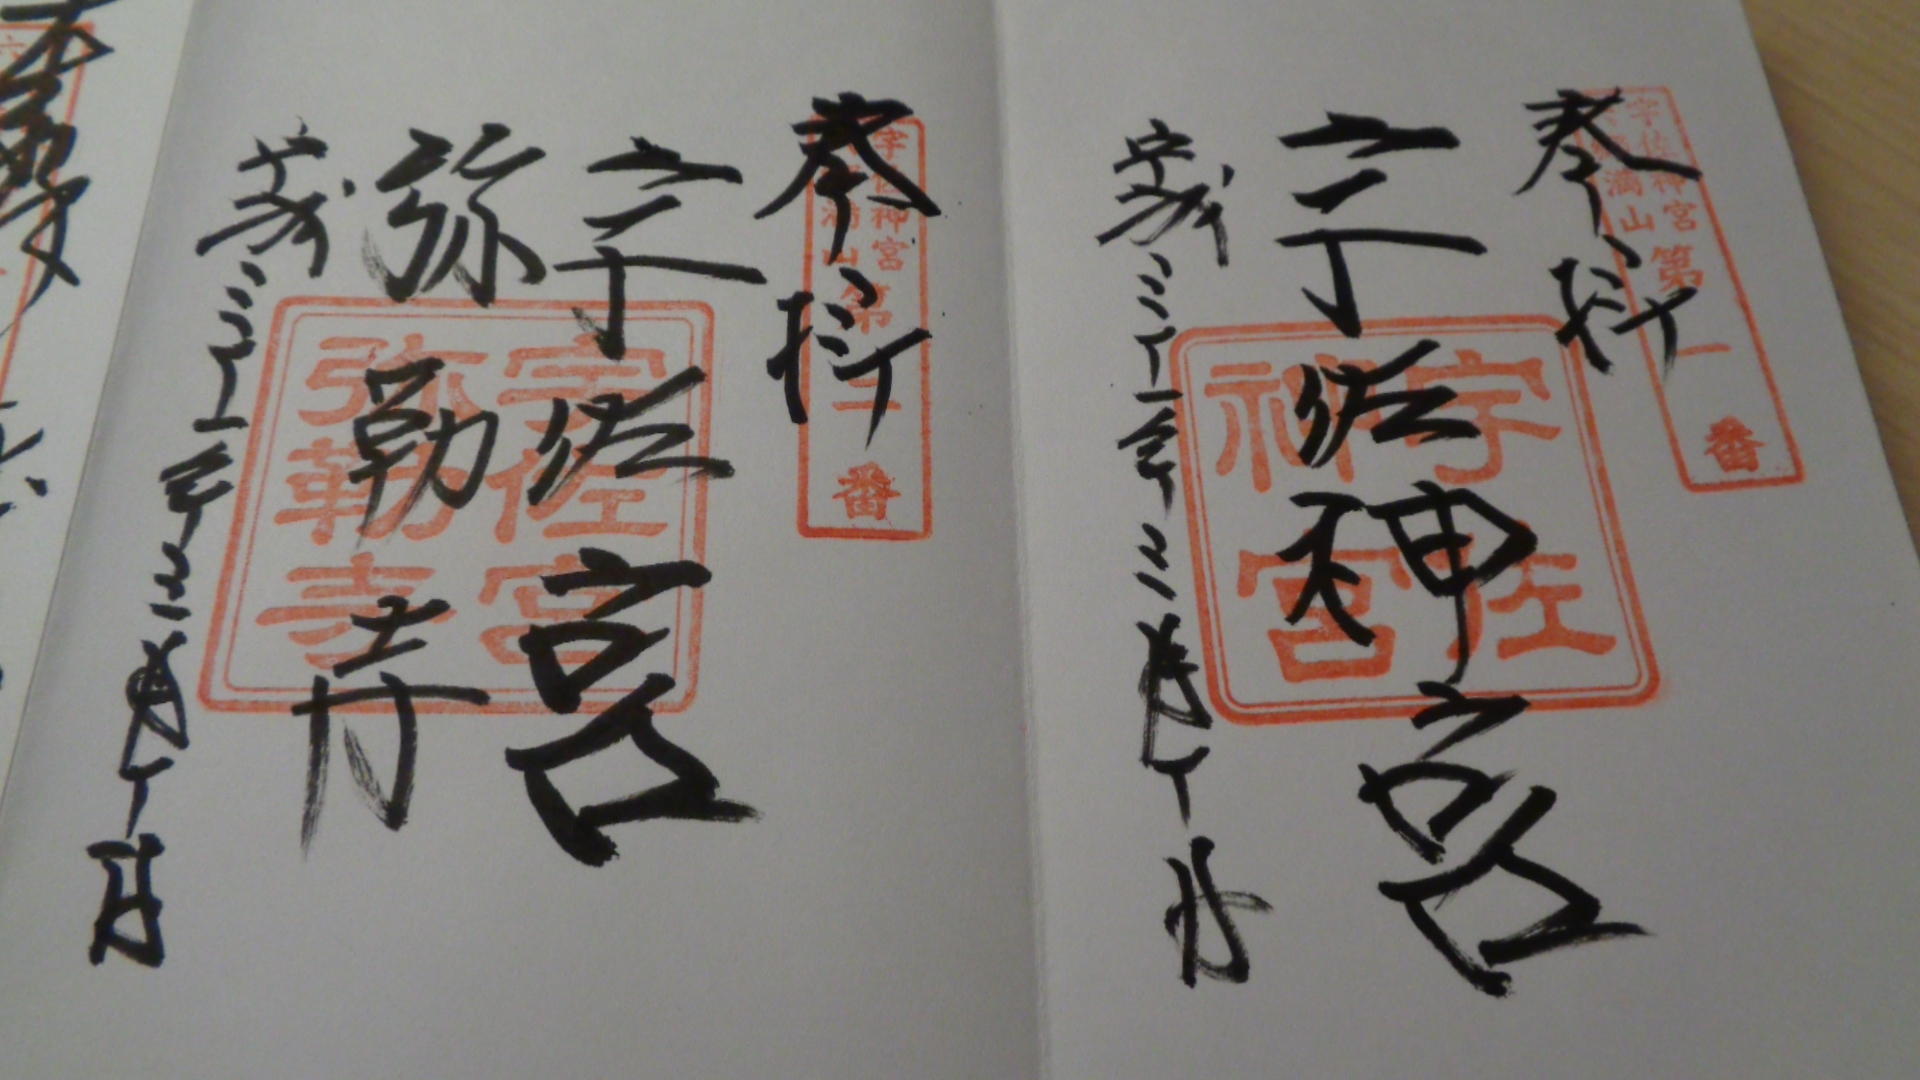 奉拝
宇佐神宮
六郷満山
第一番
宇佐神宮
宇佐
神宮
平成三十一年三月十日
奉拝
宇佐神宮
六郷満山
第二番
宇佐宮
弥勒寺
宇佐宮
弥勒寺
平成三十一年三月十日